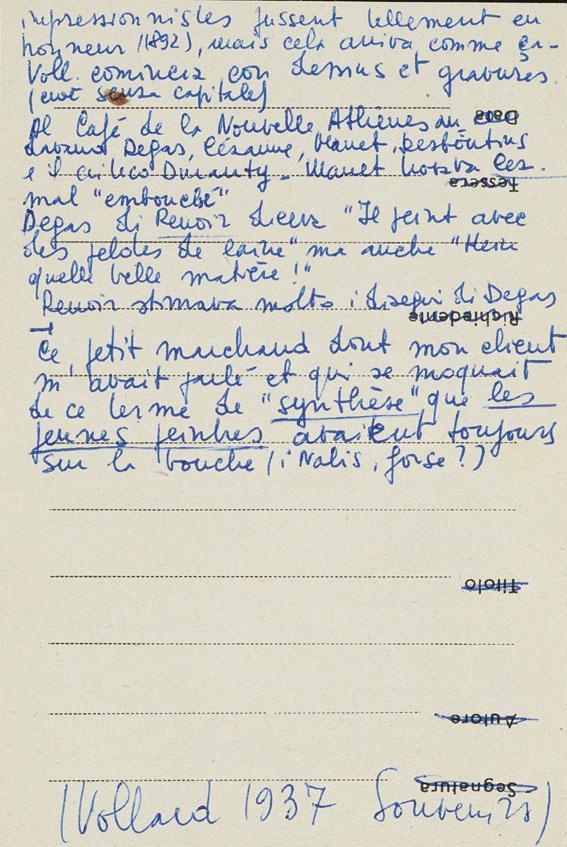 impressionnistes fussent tellement en
honneur (1892), mais cela arriva comme ça-
Voll. comincia con dessins et gravures
(era senza capitale)
Data
Al Café de la Nouvelle Athènes au
Degas, Cézanne, Manet, Desboutins
e il critico Duranty - Manet trovava Cez.
Tessera
mal "embouché"
Degas di Renoir diceva "Il peint avec
des pelotes de laine" ma anche "Hein
quelle belle matière!"
Renoir stimava molto i disegni di Degas
Richiedente
Ce petit marchand dont mon client
m'avait parlé et qui se moquait
de ce terme de "synthèse" que les
jeunes peintres avaient toujours
sur la bouche (i Nabis, forse?)
Titolo
Autore
Segnatura
(Vollard 1937 Souvenirs)